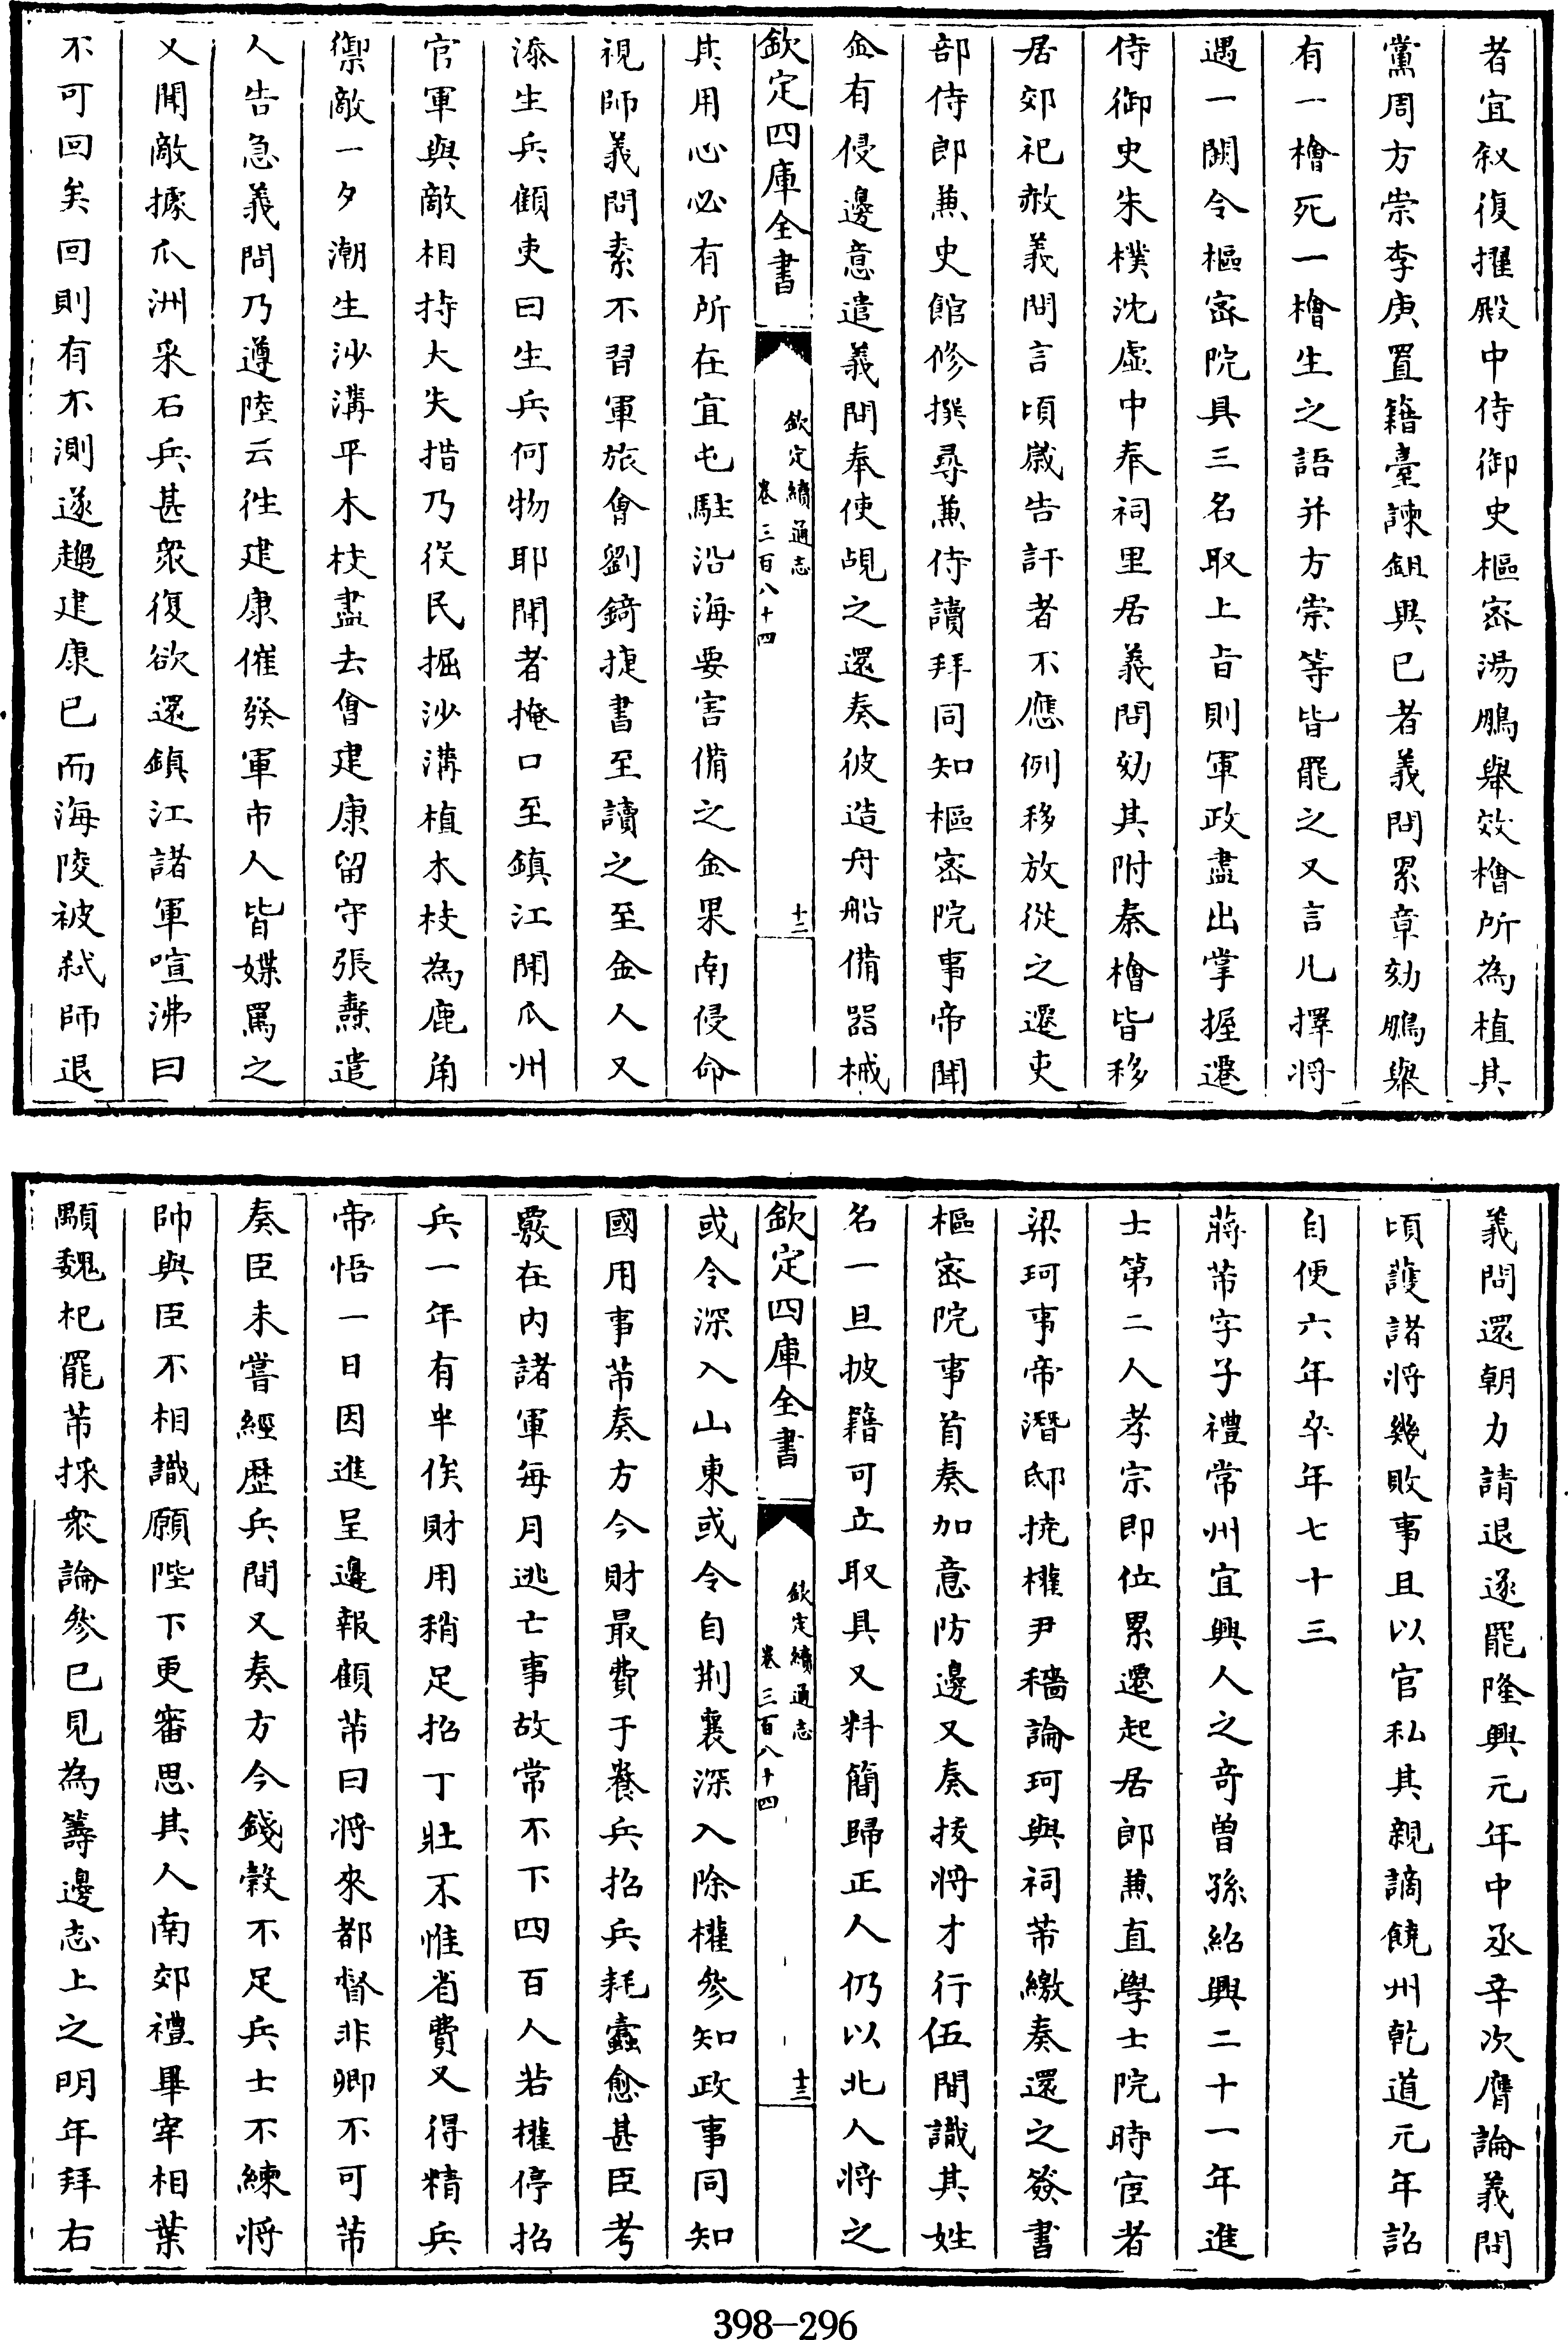 者宜叙復擢殿中侍御史樞密湯鵬舉效檜所為植其
黨周方崇李庚置籍臺諫鉏異已者義問累章劾鵬舉
有一檜死一檜生之語并方崇等皆罷之又言凡擇將
遇一闕令樞密院具三名取上旨則軍政盡出掌握遷
侍御史朱樸沈虛中奉祠里居義問劾其附秦檜皆移
居郊祀赦義問言頃嵗告訐者不應例移放從之遷吏
部侍郎兼史館修撰尋兼侍讀拜同知樞密院事帝聞
金有侵邊意遣義問奉使覘之還奏彼造舟船備器械
欽定四庫全書
欽定續通志
卷三百八十四
十二
其用心必有所在宜屯駐沿海要害備之金果南侵命
視師義問素不習軍旅會劉錡捷書至讀之至金人又
添生兵顧吏曰生兵何物耶聞者掩口至鎮江聞瓜州
官軍與敵相持大失措乃役民掘沙溝植木枝為鹿角
禦敵一夕潮生沙溝平木枝盡去會建康留守張燾遣
人告急義問乃遵陸云徃建康催發軍市人皆媟罵之
又聞敵據瓜洲采石兵甚衆復欲還鎮江諸軍喧沸曰
不可回矣回則有不測遂趨建康已而海陵被弑師退
義問還朝力請退遂罷隆興元年中丞辛次膺論義問
頃護諸將幾敗事且以官私其親謫饒州乾道元年詔
自便六年卒年七十三
蔣芾字子禮常州宜興人之奇曾孫紹興二十一年進
士第二人孝宗即位累遷起居郎兼直學士院時宦者
梁珂事帝潛邸挠權尹穡論珂與祠芾繳奏還之簽書
樞密院事首奏加意防邊又奏拔將才行伍間識其姓
名一旦披籍可立取具又料簡歸正人仍以北人將之
欽定四庫全書
欽定續通志
卷三百八十四
十三
或令深入山東或令自荆襄深入除權參知政事同知
國用事芾奏方今財最費于養兵招兵耗蠧愈甚臣考
覈在内諸軍每月逃亡事故常不下四百人若權停招
兵一年有半俟財用稍足招丁壯不惟省費又得精兵
帝悟一日因進呈邊報顧芾曰將來都督非卿不可芾
奏臣未嘗經歴兵間又奏方今錢穀不足兵士不練將
帥與臣不相識願陛下更審思其人南郊禮畢宰相葉
顒魏杞罷芾採衆論參已見為籌邊志上之明年拜右
398—296